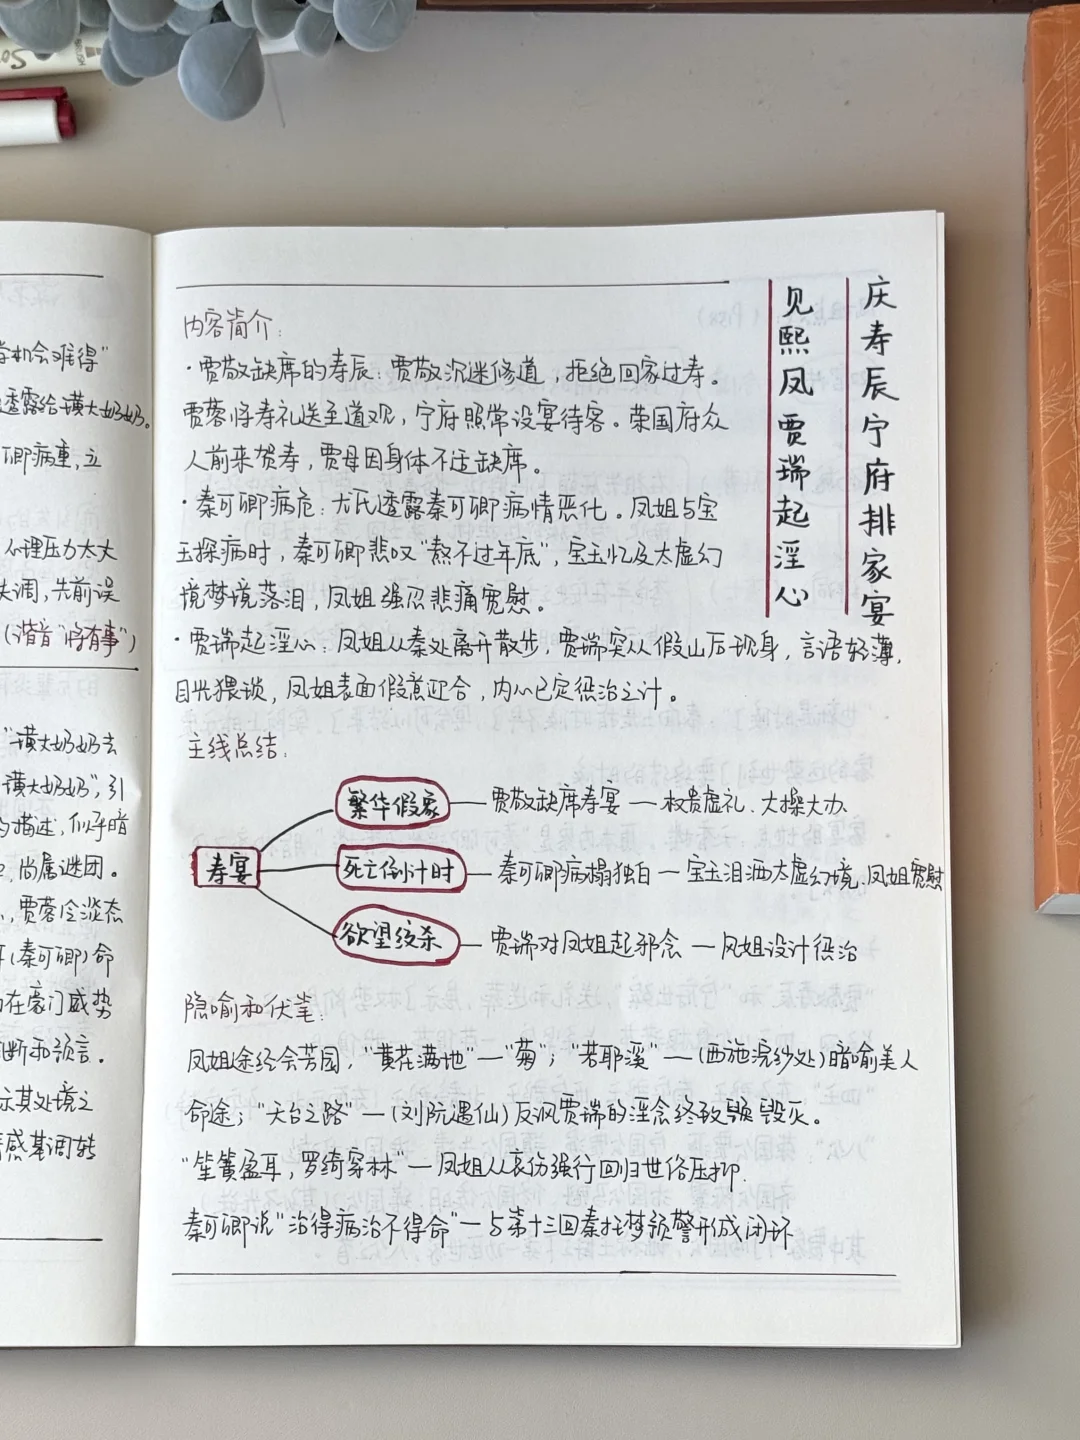 学机会难得"
透露给璜大奶奶。
卿病重,立
心理压力太大
失调,先前误
(谐音"将有事")
"璜大奶奶去
璜大奶奶",引
的描述,似乎暗
尚属谜团。
贾蓉冷淡态
(秦可卿)命
在豪门威势
断和预言。
示其处境之
情感基调转
庆寿辰宁府排家宴
见熙凤贾瑞起淫心
内容简介:
·贾敬缺席的寿辰:贾敬沉迷修道,拒绝回家过寿。
贾蓉将寿礼送至道观,宁府照常设宴待客。荣国府众
人前来贺寿,贾母因身体不适缺席。
·秦可卿病危:尤氏透露秦可卿病情恶化。凤姐与宝
玉探病时,秦可卿悲叹"熬不过年底",宝玉忆及太虚幻
境梦境落泪,凤姐强忍悲痛宽慰。
·贾瑞起淫心:凤姐从秦处离开散步,贾瑞突从假山后现身,言语轻薄,
目光猥琐,凤姐表面假意迎合,内心已定惩治之计。
主线总结:
寿宴
繁华假象—贾敬缺席寿宴—权贵虚礼、大操大办
死亡倒计时—秦可卿病榻独白—宝玉泪洒太虚幻境、凤姐宽慰
欲望绞杀—贾瑞对凤姐起邪念—凤姐设计惩治
隐喻和伏笔:
凤姐途经会芳园,"黄花满地"—"菊";"若耶溪"—(西施浣纱处)暗喻美人
命途;"天台之路"—(刘阮遇仙)反讽贾瑞的淫念终致毁灭。
"笙簧盈耳,罗绮穿林"—凤姐从哀伤强行回归世俗压抑.
秦可卿说"治得病治不得命"—与第十三回秦托梦预警形成闭环